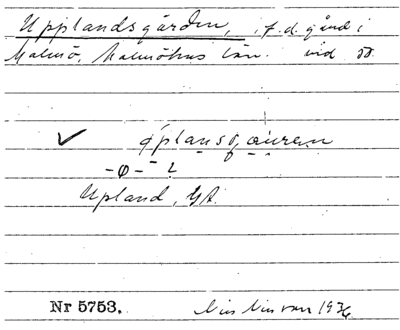 Upplandsgården, f.d. gård i
Malmö, Malmöhus län. vid
✓ öplansgåuren
-φ- 2
Upland, GA.
Nr 5753. 1936